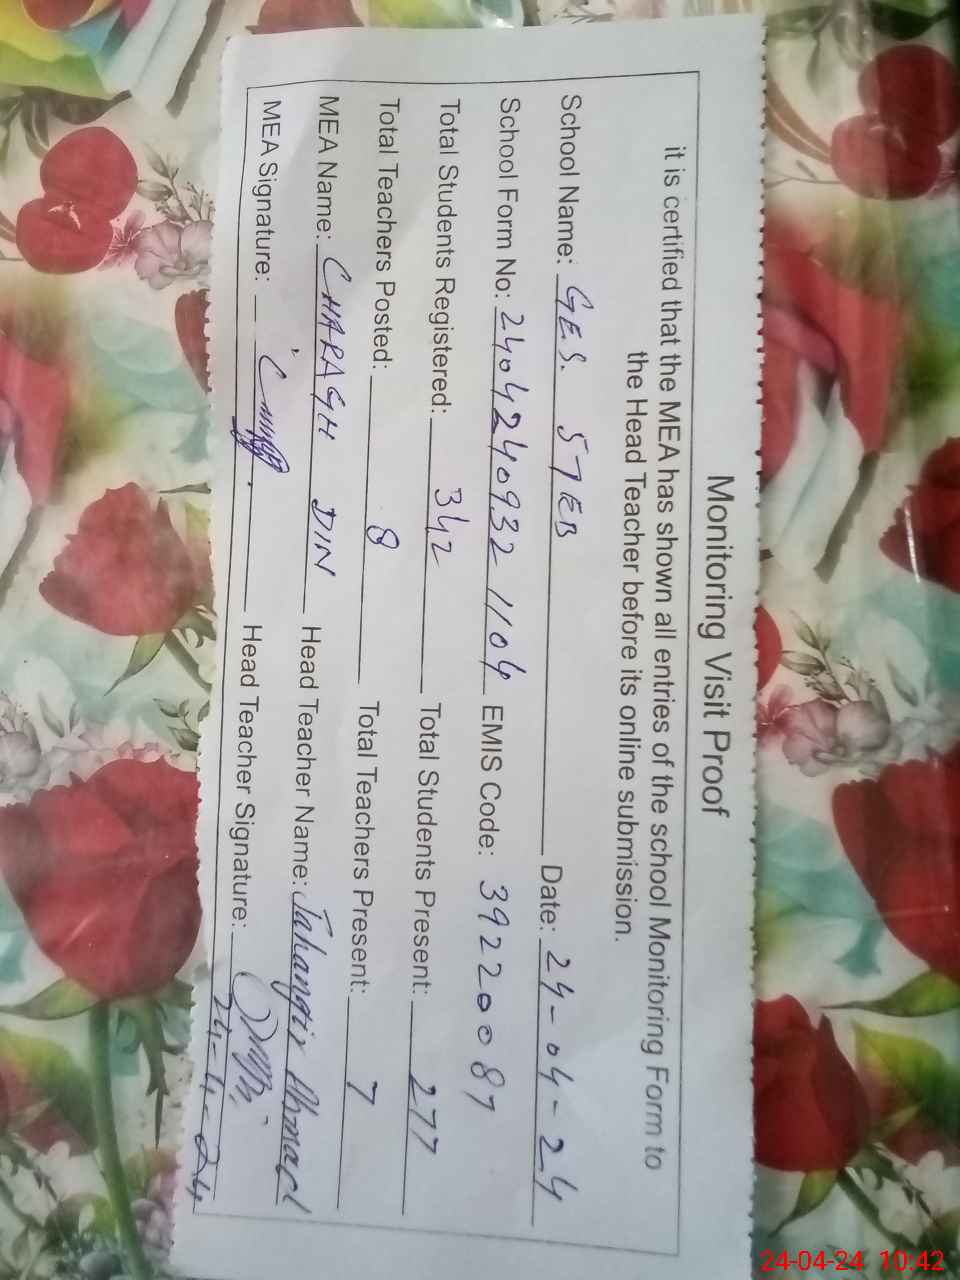 Monitoring Visit Proof
it is certified that the MEA has shown all entries of the school Monitoring Form to
the Head Teacher before its online submission.
School Name: GES. 57EB Date: 24-04-24
School Form No: 24042409321104 EMIS Code: 39220087
Total Students Registered: 342 Total Students Present: 277
Total Teachers Posted: 8 Total Teachers Present: 7
MEA Name: CHARAGH DIN Head Teacher Name: Jahangir Ahmad
MEA Signature: Head Teacher Signature:
24-4-24
24-04-24 10:42